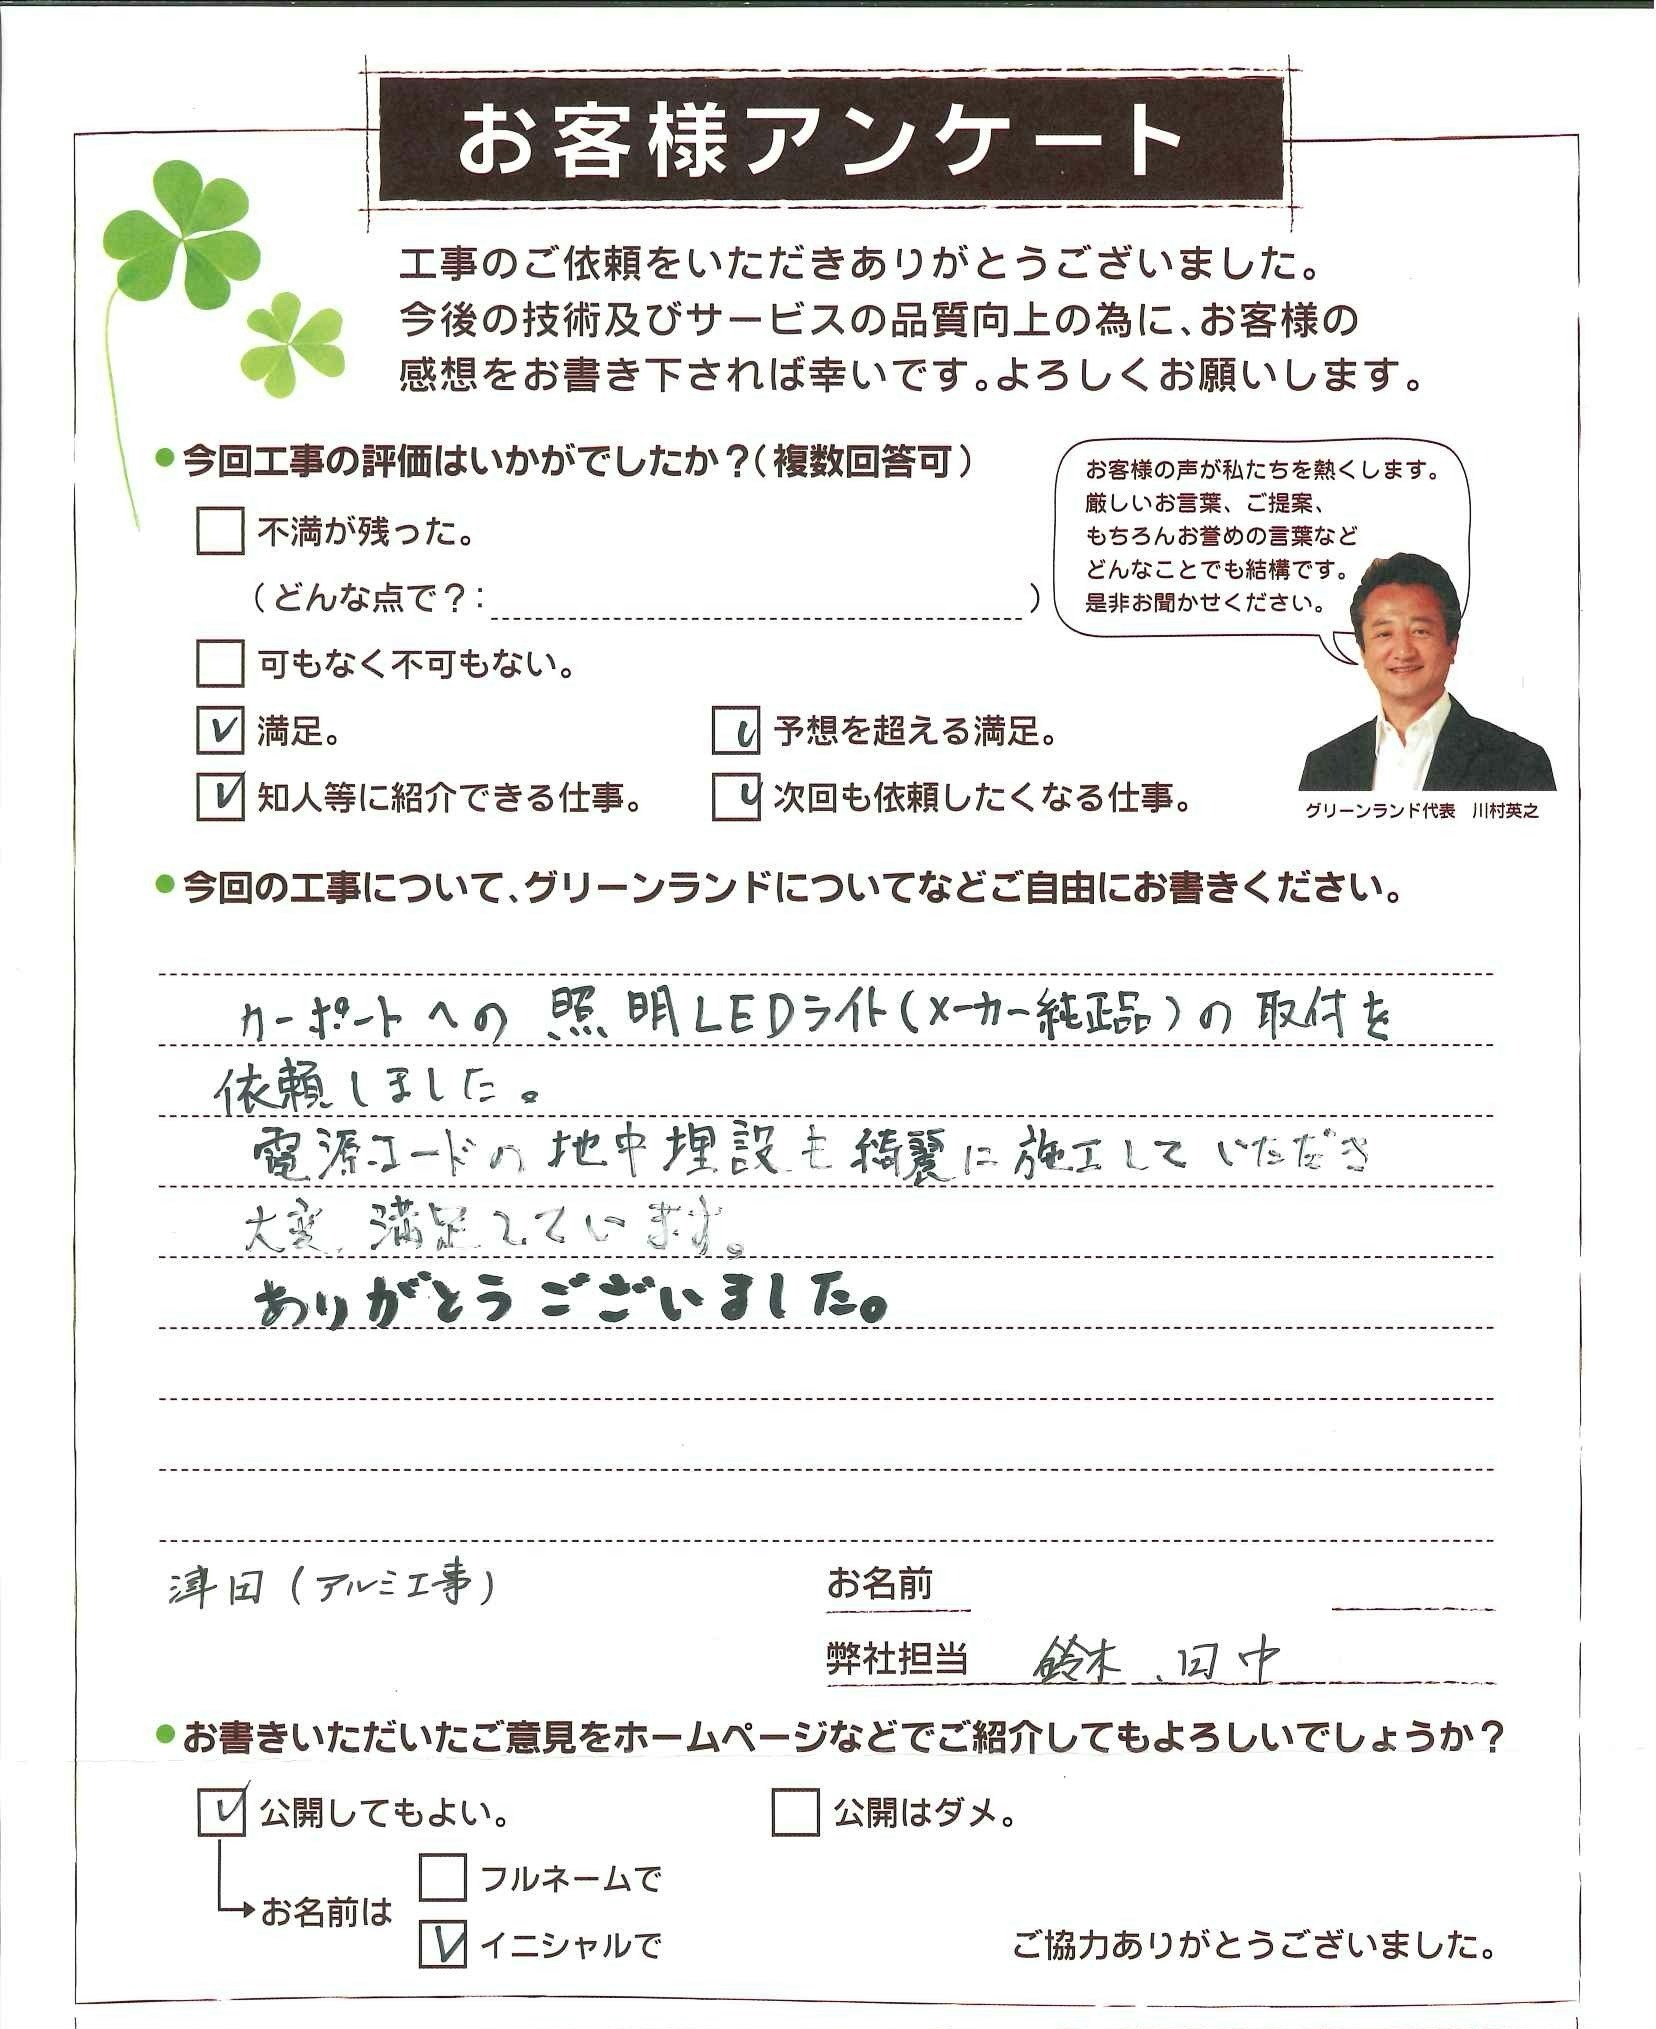 お客様アンケート
工事のご依頼をいただきありがとうございました。
今後の技術及びサービスの品質向上の為に、お客様の
感想をお書き下されば幸いです。よろしくお願いします。
●今回工事の評価はいかがでしたか？（複数回答可）
不満が残った。
（どんな点で？：　　　）
可もなく不可もない。
満足。
予想を超える満足。
知人等に紹介できる仕事。
次回も依頼したくなる仕事。
お客様の声が私たちを熱くします。
厳しいお言葉、ご提案、
もちろんお誉めの言葉など
どんなことでも結構です。
是非お聞かせください。
グリーンランド代表　川村英之
●今回の工事について、グリーンランドについてなどご自由にお書きください。
カーポートへの照明LEDライト(メーカー純正品)の取付を
依頼しました。
電源コードの地中埋設も綺麗に施工していただき
大変、満足しています。
ありがとうございました。
津田(アルミ工事)
お名前
弊社担当　鈴木、田中
●お書きいただいたご意見をホームページなどでご紹介してもよろしいでしょうか？
公開してもよい。
公開はダメ。
お名前は
フルネームで
イニシャルで
ご協力ありがとうございました。